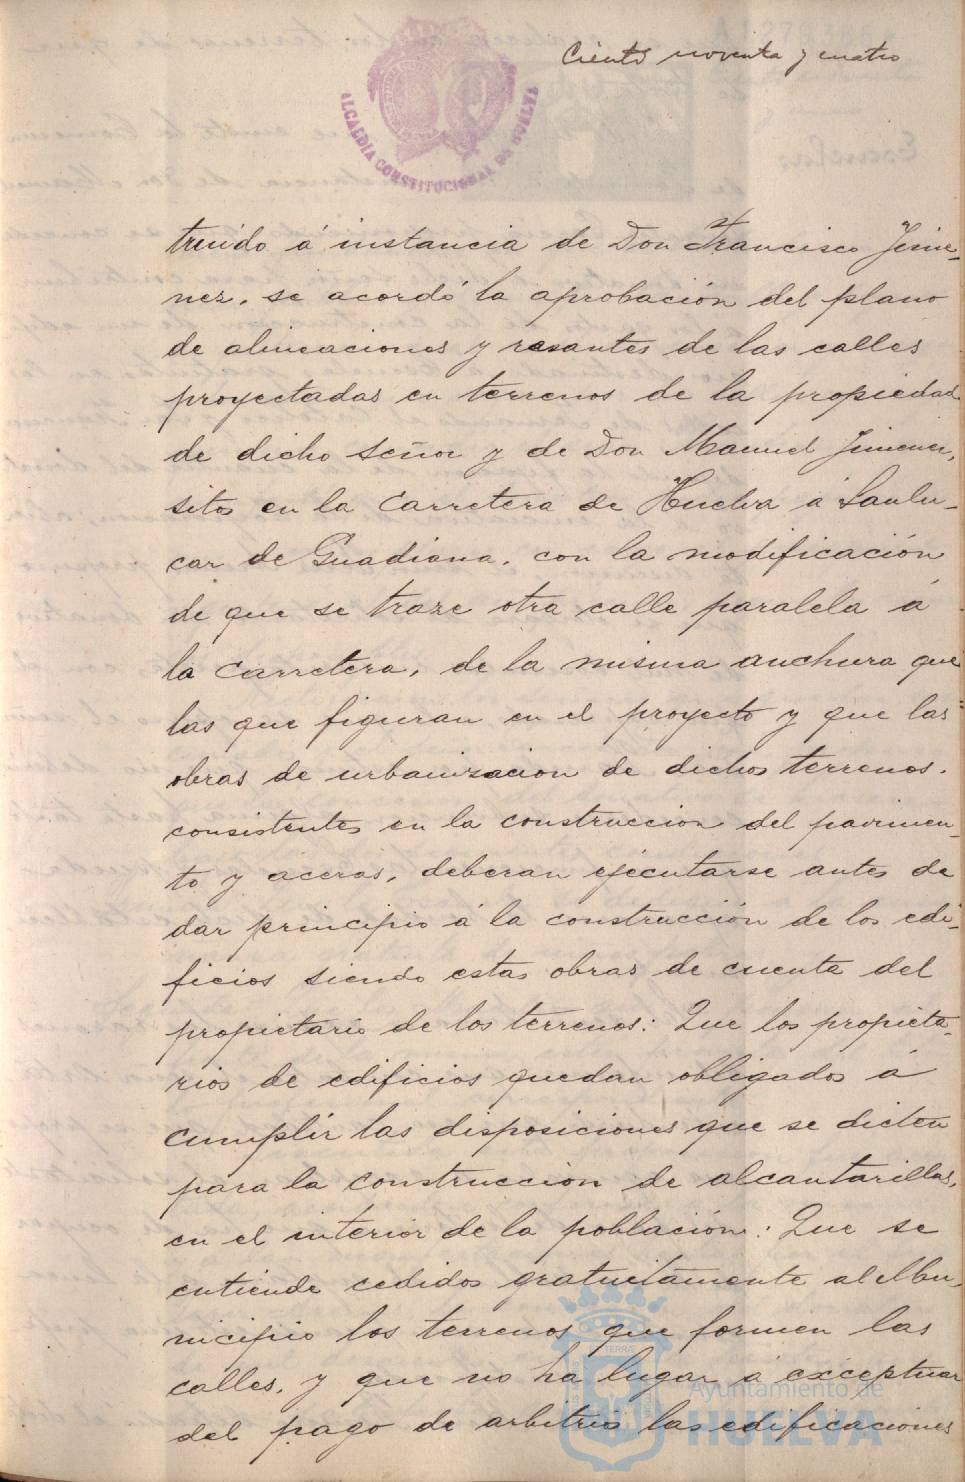 Ciento noventa y cuatro
ALCALDIA CONSTITUCIONAL DE HUELVA
truido á instancia de Don Francisco Jime-
nez, se acordó la aprobación del plano
de alineaciones y rasantes de las calles
proyectadas en terrenos de la propiedad
de dicho señor y de Don Manuel Jimenez,
sitos en la Carretera de Huelva á Sanlu-
car de Guadiana, con la modificación
de que se traze otra calle paralela á
la Carretera, de la misma anchura que
las que figuran en el proyecto y que las
obras de urbanizacion de dichos terrenos,
consistentes en la construccion del pavimen-
to y aceras, deberan ejecutarse antes de
dar principio á la construcción de los edi-
ficios siendo estas obras de cuenta del
propietario de los terrenos: Que los propieta-
rios de edificios quedan obligados á
cumplir las disposiciones que se dicten
para la construccion de alcantarillas,
en el interior de la población: Que se
entiende cedidos gratuitamente al Mu-
nicipio los terrenos que formen las
calles, y que no ha lugar á exceptuar
del pago de arbitrios las edificaciones
Ayuntamiento de
HUELVA